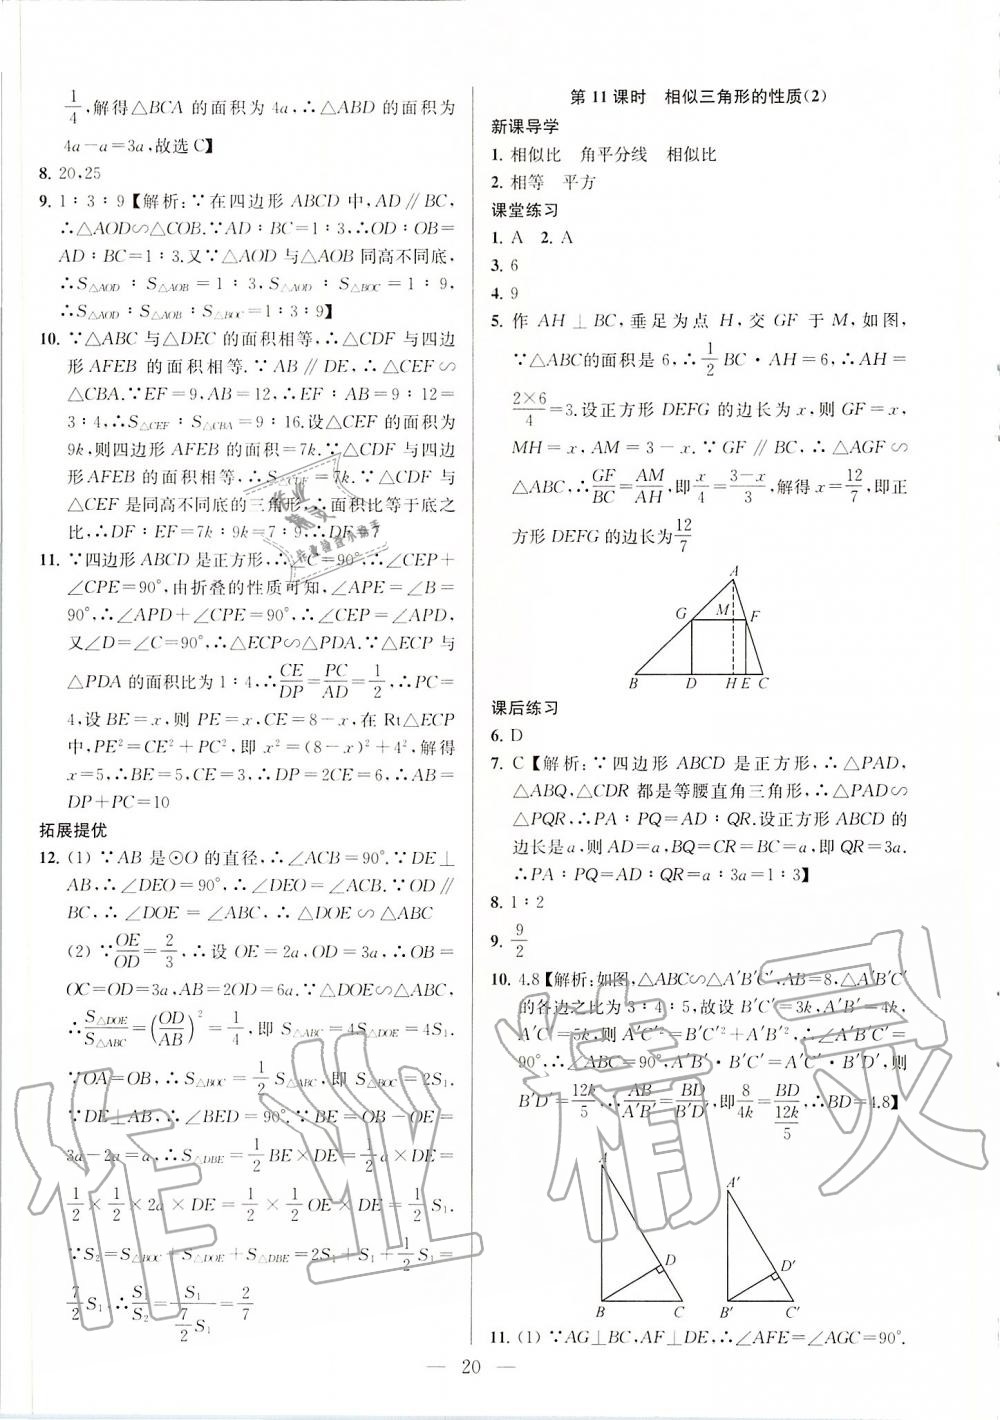 1/4,解得△BCA 的面积为 4a,∴△ABD 的面积为
4a-a=3a,故选C】
8. 20,25
9. 1∶3∶9【解析:∵在四边形 ABCD 中,AD∥BC,
∴△AOD∽△COB.∵AD∶BC=1∶3,∴OD∶OB=
AD∶BC=1∶3.又∵△AOD 与△AOB 同高不同底,
∴S△AOD∶S△AOB=1∶3,S△AOD∶S△BOC=1∶9,
∴S△AOD∶S△AOB∶S△BOC=1∶3∶9】
10. ∵△ABC 与△DEC 的面积相等,∴△CDF 与四边
形 AFEB 的面积相等.∵AB∥DE,∴△CEF∽
△CBA.∵EF=9,AB=12,∴EF∶AB=9∶12=
3∶4,∴S△CEF∶S△CBA=9∶16.设△CEF 的面积为
9k,则四边形 AFEB 的面积=7k.∵△CDF 与四边
形 AFEB 的面积相等,∴S△CDF=7k.∵△CDF 与
△CEF 是同高不同底的三角形,∴面积比等于底之
比,∴DF∶EF=7k∶9k=7∶9,∴DF=7
11. ∵四边形 ABCD 是正方形,∴∠C=90°,∴∠CEP+
∠CPE=90°,由折叠的性质可知,∠APE=∠B=
90°,∴∠APD+∠CPE=90°,∴∠CEP=∠APD,
又∠D=∠C=90°,∴△ECP∽△PDA.∵△ECP 与
△PDA 的面积比为 1∶4,∴CE/DP=PC/AD=1/2,∴PC=
4,设 BE=x,则 PE=x,CE=8-x,在 Rt△ECP
中,PE²=CE²+PC²,即 x²=(8-x)²+4²,解得
x=5,∴BE=5,CE=3,∴DP=2CE=6,∴AB=
DP+PC=10
拓展提优
12. (1) ∵AB 是⊙O 的直径,∴∠ACB=90°.∵DE⊥
AB,∴∠DEO=90°,∴∠DEO=∠ACB.∵OD∥
BC,∴∠DOE=∠ABC,∴△DOE∽△ABC
(2) ∵OE/OD=2/3,∴设 OE=2a,OD=3a,∴OB=
OC=OD=3a,AB=2OD=6a.∵△DOE∽△ABC,
∴S△DOE/S△ABC=(OD/AB)²=1/4,即 S△ABC=4S△DOE=4S₁.
∵OA=OB,∴S△BOC=1/2S△ABC,即 S△BOC=2S₁.
∵DE⊥AB,∴∠BED=90°.∵BE=OB-OE=
3a-2a=a,∴S△DBE=1/2BE×DE=
1/2×1/2×2a×DE=1/2×1/2OE×DE=1/2S₁.
∵S₂=S△BOC+S△DOE+S△DBE=2S₁+S₁+1/2S₁=
7/2S₁,∴S₁/S₂=S₁/(7/2S₁)=2/7
第 11 课时 相似三角形的性质(2)
新课导学
1. 相似比 角平分线 相似比
2. 相等 平方
课堂练习
1. A 2. A
3. 6
4. 9
5. 作 AH⊥BC,垂足为点 H,交 GF 于 M,如图,
∵△ABC的面积是 6,∴1/2BC·AH=6,∴AH=
2×6/4=3.设正方形 DEFG 的边长为 x,则 GF=x,
MH=x,AM=3-x.∵GF∥BC,∴△AGF∽
△ABC,∴GF/BC=AM/AH,即x/4=3-x/3,解得 x=12/7,即正
方形 DEFG 的边长为12/7
A
G M F
B D H E C
课后练习
6. D
7. C【解析:∵四边形 ABCD 是正方形,∴△PAD,
△ABQ,△CDR 都是等腰直角三角形,∴△PAD∽
△PQR,∴PA∶PQ=AD∶QR.设正方形 ABCD 的
边长是a,则 AD=a,BQ=CR=BC=a,即 QR=3a.
∴PA∶PQ=AD∶QR=a∶3a=1∶3】
8. 1∶2
9. 9/2
10. 4.8【解析:如图,△ABC∽△A′B′C′,AB=8,△A′B′C′
的各边之比为 3∶4∶5,故设 B′C′=3k,A′B′=4k,
A′C′=5k,则 A′C′²=B′C′²+A′B′²,∴∠A′B′C′=
90°,∴∠ABC=90°,A′B′·B′C′=A′C′·B′D′,则
B′D′=12k/5,∴AB/A′B′=BD/B′D′,即8/4k=BD/(12k/5),∴BD=4.8】
A
A′
D D′
B C B′ C′
11. (1) ∵AG⊥BC,AF⊥DE,∴∠AFE=∠AGC=90°.
— 20 —
作业精灵